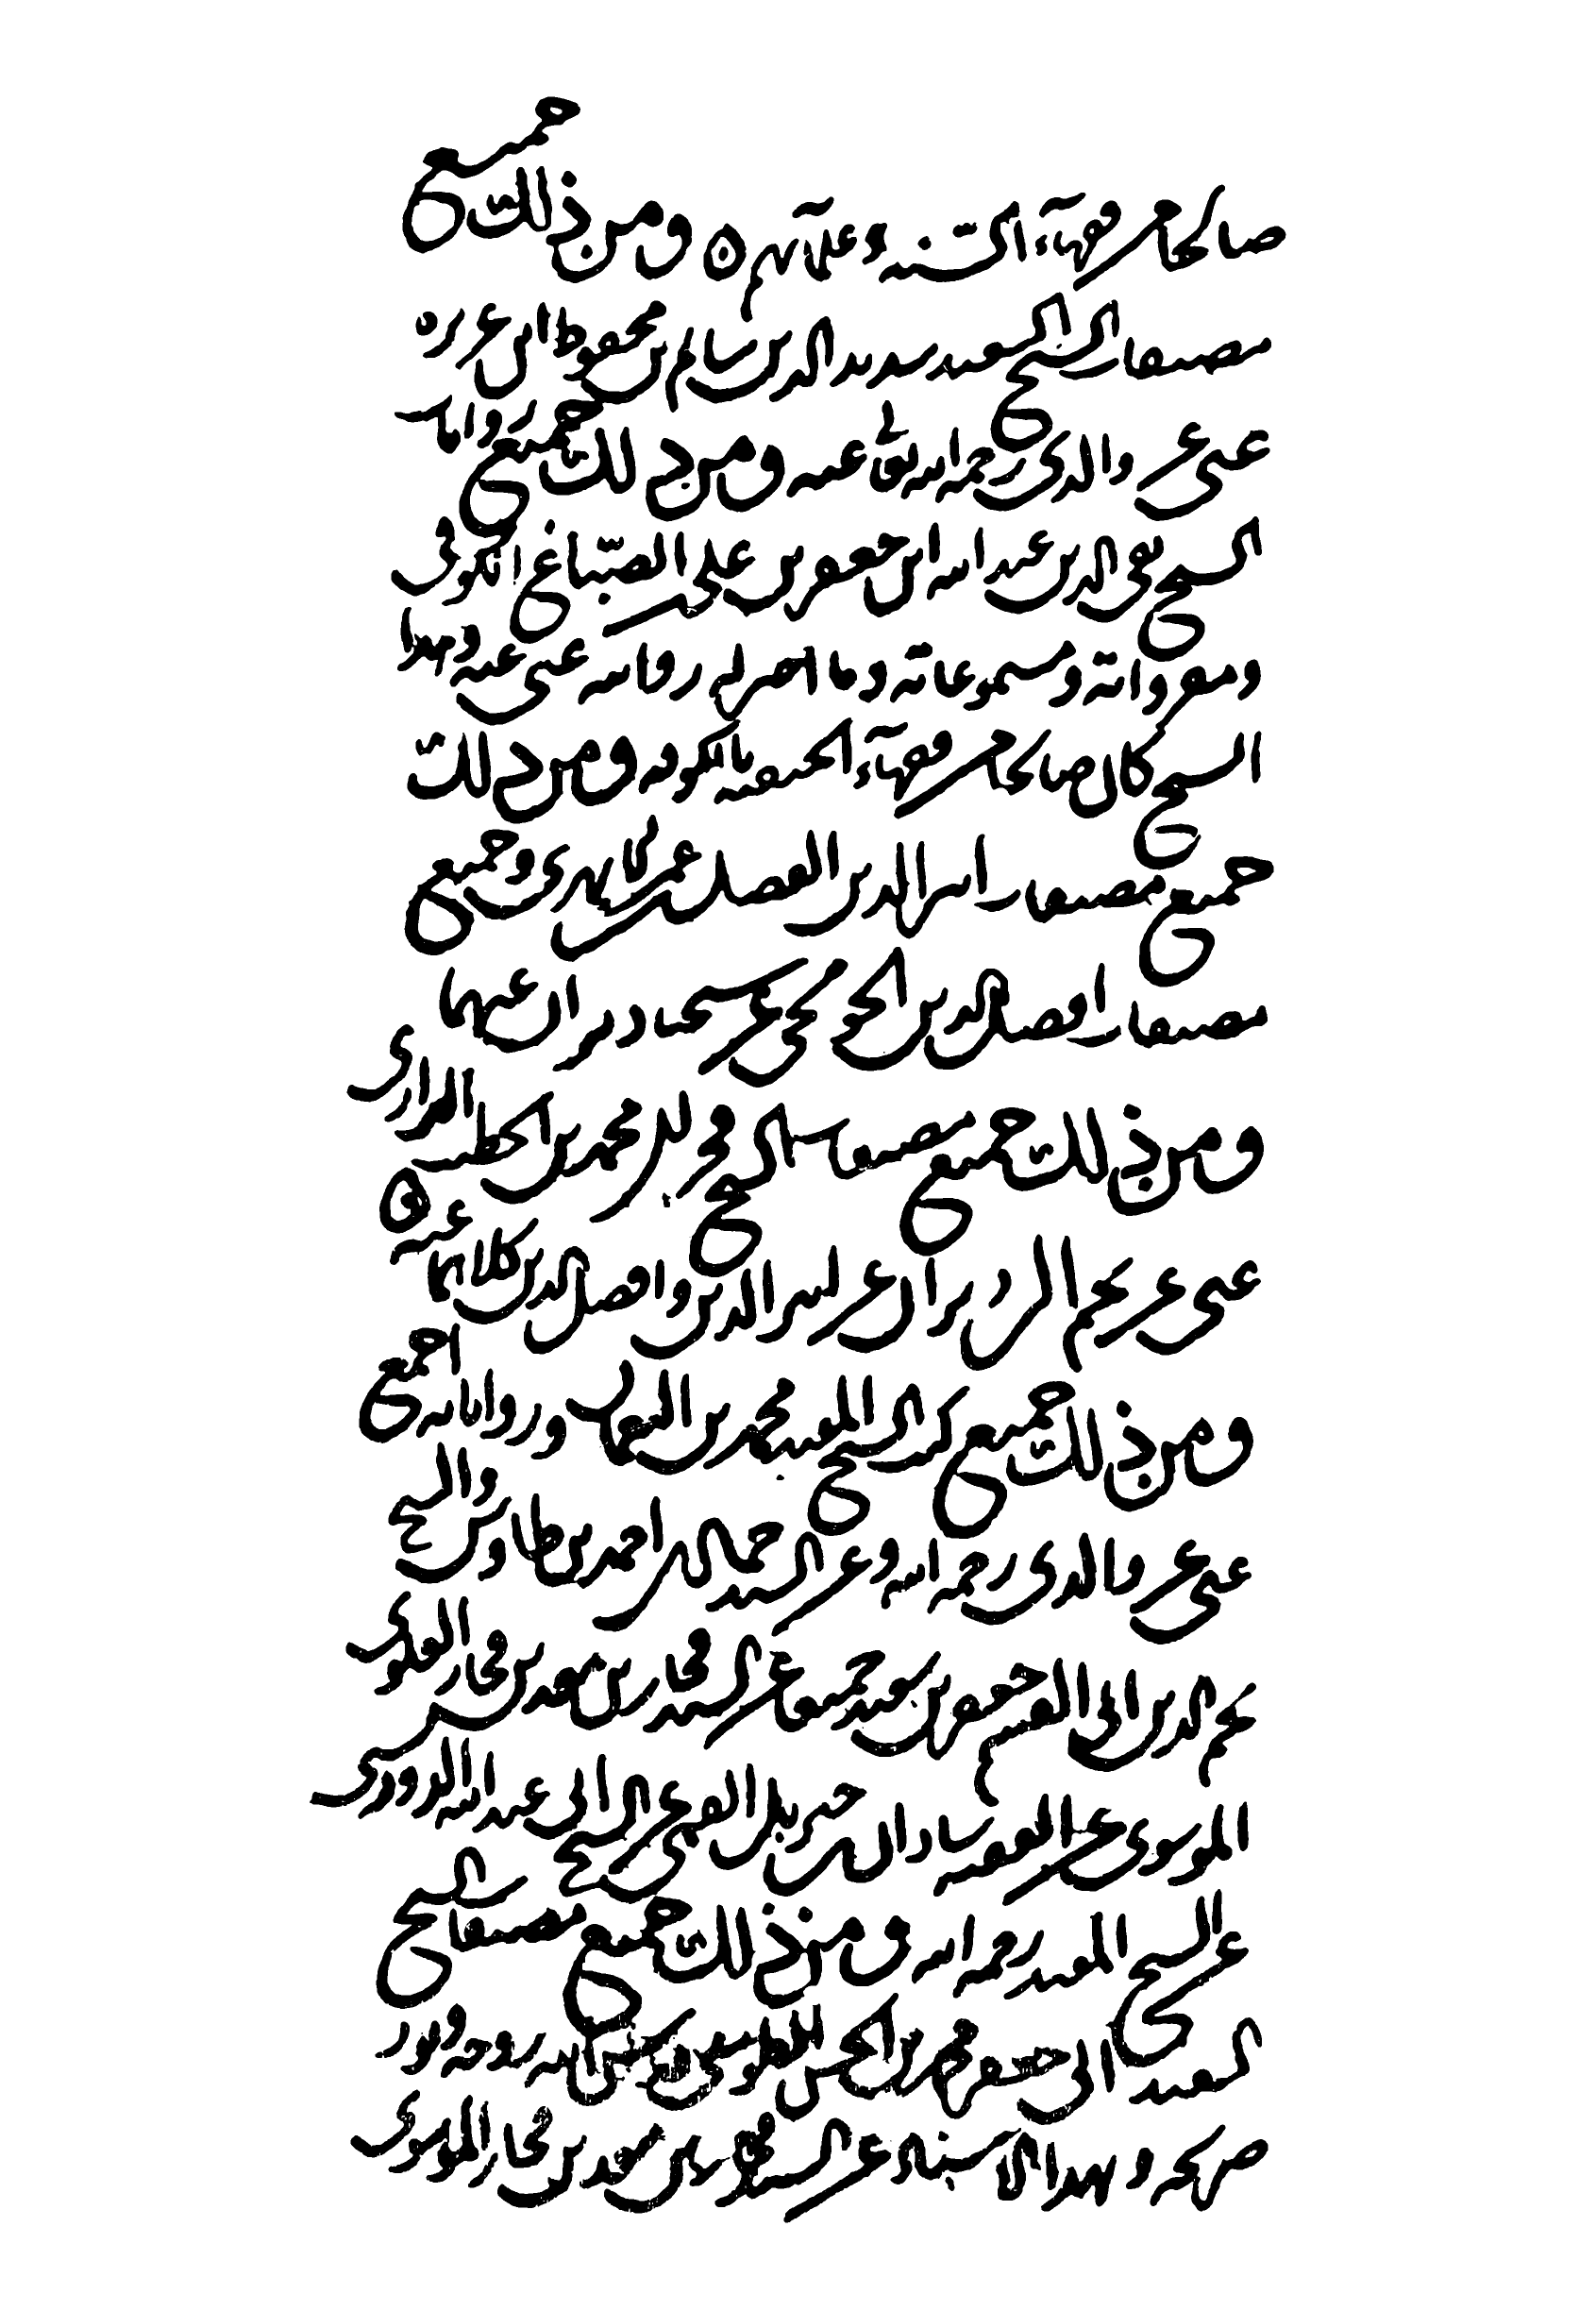 صالحا من فقهاء السنة وعلمائهم ٥ ومن ذلك جميع
مصنفات الشيخ السعيد سديد الدين سالم بن محفوظ ابن عزيزه
عني عن والدي رحمه الله تعالى عنه ومن ذلك جميع روايات
الشيخ تقي الدين عبد الله ابن جعفر بن علي الصباغ الكوفي
ومقرواته ومسموعاته وما اجيز له روايته عني عنه وهذا
الشيخ كان صالحا من فقهاء الحنفية بالكوفة ومن ذلك
جميع مصنفات اثير الدين الفضل بن عمر الابهري وجميع
مصنفات افضل الدين الخونجي عن شيخنا دبيران عنهما
ومن ذلك جميع مصنفات الشيخ فخر الدين محمد بن الخطيب الرازي
عني عن نجم الدين دبيران عن اثير الدين وافضل الدين كلاهما عنه ٥
ومن ذلك جميع كتب الشيخ المفيد محمد بن النعمان ورواياته اجمع
عني عن والدي رحمه الله وعن السيد جمال الدين احمد بن طاوس والشيخ
نجم الدين ابي القسم جعفر بن سعيد جميعا عن السيد فخار بن معد بن فخار العلوي
الموسوي عن الفقيه شاذان بن جبريل القمي عن الشيخ ابي عبد الله الدوريستي
عن الشيخ المفيد رحمه الله ومن ذلك جميع مصنفات الشيخ
السعيد ابي جعفر محمد بن الحسن الطوسي قدس الله روحه ونور
ضريحه وبهذا الاسناد عن السيد فخار بن معد بن فخار الموسوي